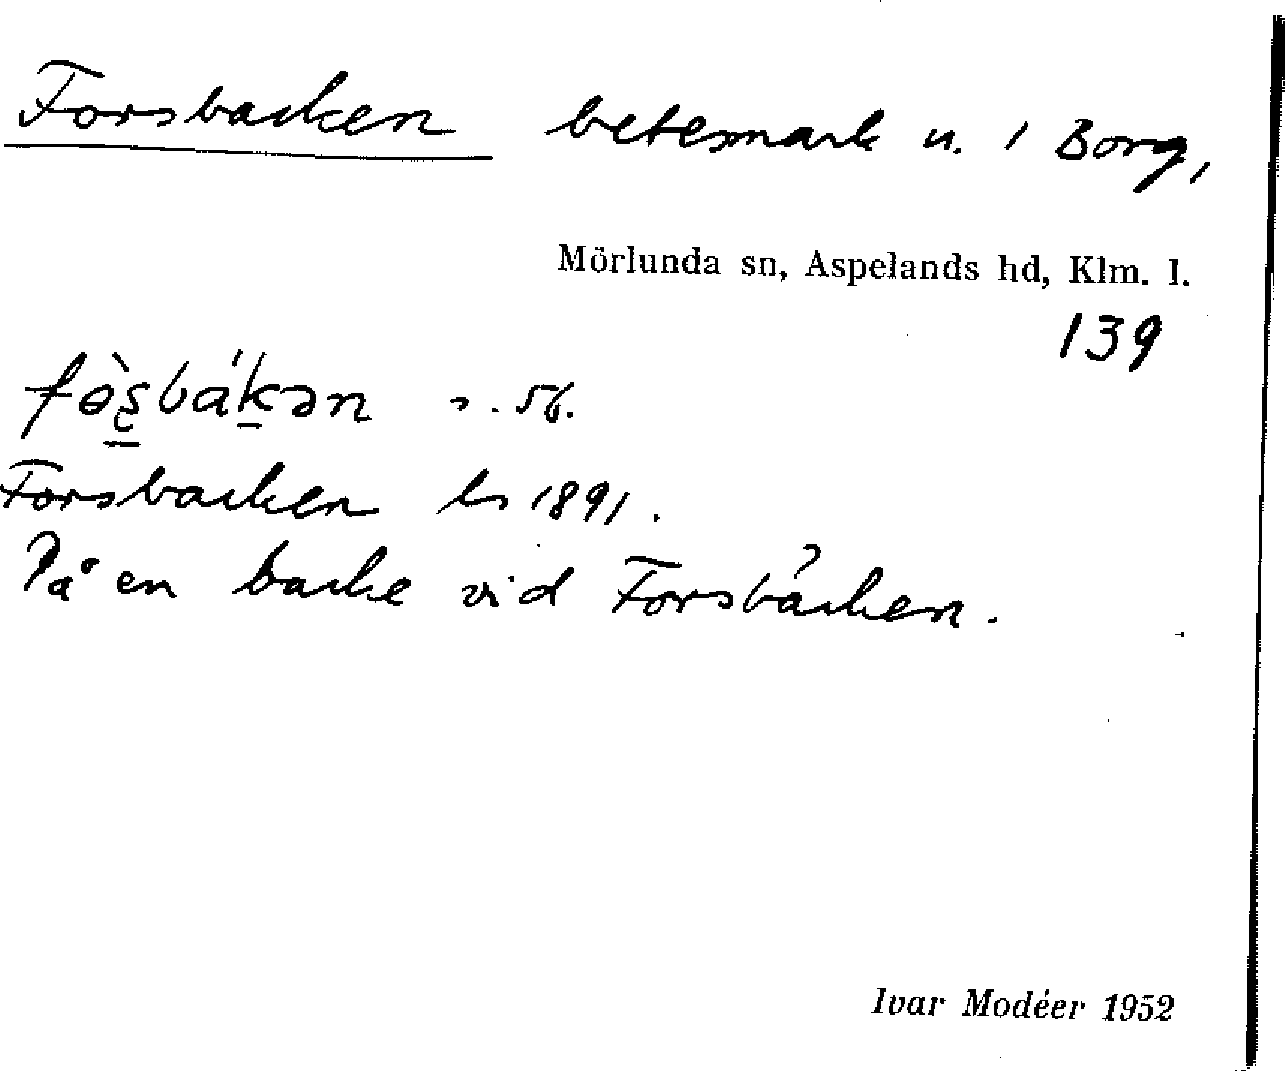 Forsbacken betesmark u. 1 Borg,
Mörlunda sn, Aspelands hd, Klm. l.
139
s. 56.
Forsbacken ls 1891.
På en backe vid Forsbäcken.
Ivar Modéer 1952